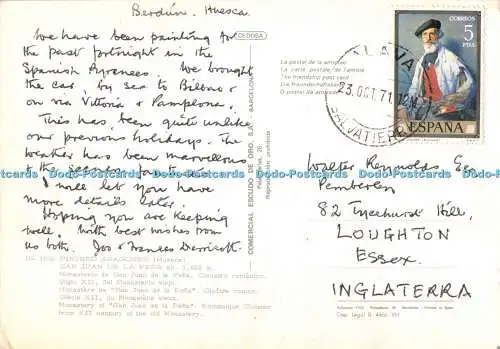 Berdún. Huesca
We have been painting for
the past fortnight in the
Spanish Pyrenees. We brought
the car by sea to Bilbao &
on via Vittoria & Pamplona.
This has been quite unlike
our previous holidays. The
weather has been marvellous
& the scenery fantastic.
I will let you have
more details later.
Hoping you are keeping
well. With best wishes from
us both. Jos & Frances
PIRINEO ARAGONES (Huesca)
SAN JUAN DE LA PEÑA
Monasterio de San Juan de la Peña. Claustro románico.
Siglo XII, del Monasterio viejo.
Monastère de "San Juan de la Peña". Cloître roman.
Siècle XII, du Monastère vieux.
Monastery of "San Juan de la Peña". Romanesque Cloister
from XII century of the old Monastery.
COMERCIAL ESCUDO DE ORO, S.A. - BARCELONA
Reproducción prohibida
CEDOSA
La postal de la amistad
La carte postale de l'amitié
The friendship post card
Die Freundschaftskarte
O postal da amizade
CORREOS
5
PTAS
ESPAÑA
23 OCT. 71
SALVATIERRA
Walter Reynolds Esq
Pemberley
82 Tycehurst Hill,
LOUGHTON
Essex.
INGLATERRA
Dodo-Postcards.com